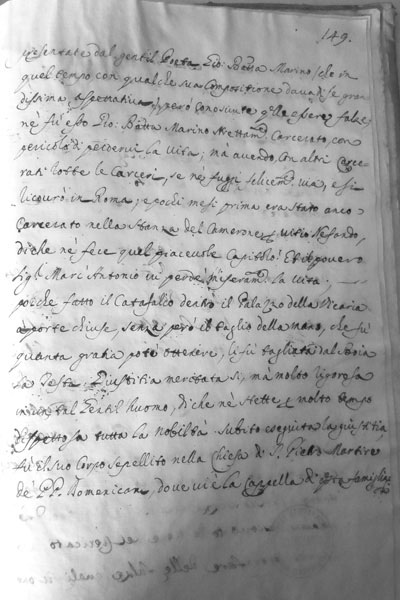 149.
presentate dal gentil Poeta Gio: Batta Marino, che in
quel tempo con qualche sua Compositione dava di se gran-
dissima aspettativa, però conosciute q.lle essere false
nè fu esso Gio: Batta Marino strettam.te Carcerato, con
pericolo di perdervi la Vita; mà avendo con altri Carce-
rati rotte le Carceri, se ne fuggì via, e si
ricourò in Roma; e pochi mesi prima era stato anco
Carcerato nella stanza del Camerone p. vitio Nefando,
di che nè fece quel piacevole Capitolo: Et il povero
Sig.r Marc'Antonio vi perdè miseram.te la Vita;
poiche fatto il Catafalco dentro il Palazzo della Vicaria
a porte chiuse, senza però il taglio della mano, che fù
quanta gratia potè ottenere, li fù tagliata dal Boia
la Testa, Giustitia meritata sì, mà molto rigorosa
in un tal Gentil'huomo, di che nè stette p. molto tempo
dispettosa tutta la Nobiltà. Subito eseguita la giustitia
fù il suo Corpo sepellito nella Chiesa di S. Pietro Martire
de' PP. Domenicani, dove vi è la Cappella di famiglia